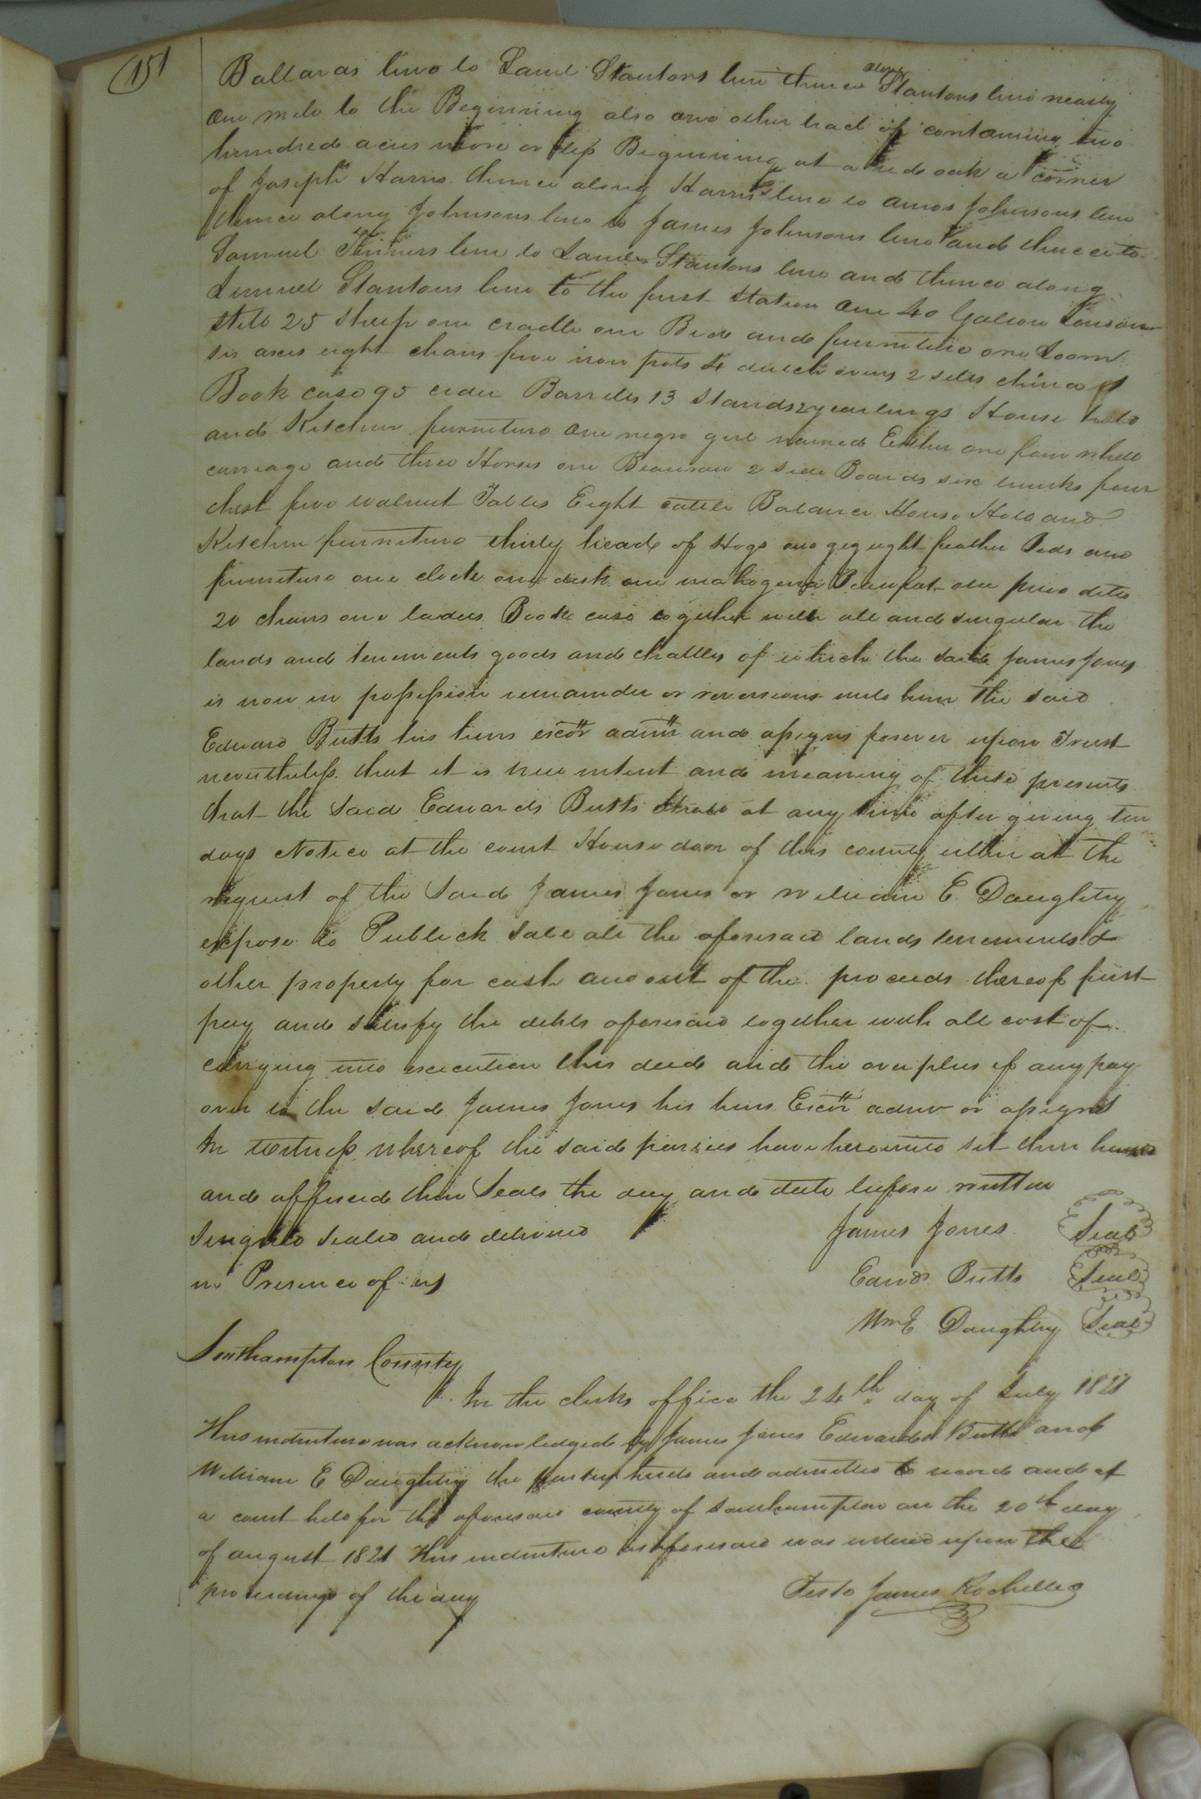 151
Ballaras line to Saml Stantons line thence along Stantons line nearly
one mile to the Beginning also one other tract of containing two
hundred acres more or less Beginning at a red oak a corner
of Joseph Harris thence along Harris's line to amos Johnsons line
thence along Johnsons line to James Johnsons line and thence to
Samuel Turners line to Saml Stantons line and thence along
Lemuel Stantons line to the first Station one 40 Gallon
still 25 sheep one cradle one Bede and furniture one Loom
six axes eight chairs five iron pots 4 dutch ovens 2 setts china
Book case 95 cider Barrels 13 Stands 2 yearlings House hold
and Kitchen furniture one negro girl named Esther one four wheel
carriage and three Horses one Beaurau 2 side Boards six trunks four
chest five walnut Tables Eight cattle Balance House Hold and
Kitchen furniture thirty head of Hogs one gig eight feather Beds and
furniture one clock one desk one mahogena one pine ditto
20 chairs one ladies Book case together with all and singular the
lands and tenements goods and chattles of which the said James Jones
is now in possession remainder or reversions unto him the said
Edward Butts his heirs excors admrs and assigns forever upon Trust
nevertheless that it is true intent and meaning of these presents
that the said Edwards Butts shall at any time after giving ten
days Notice at the court House door of this county either at the
request of the said James Jones or William E. Daughtry
expose to Publick Sale all the aforesaid lands tenements &
other property for cash and out of the proceeds thereof first
pay and satisfy the debts aforesaid together with all cost of
carrying into execution this deed and the overplus if any pay
over to the said James Jones his heirs Excors admr or assigns
In witness whereof the said parties have hereunto set their hands
and affixed their Seals the day and date before written
Singned sealed and delivered
in Presence of us
James Jones Seal
Edwd Butts Seal
Wm E Daughtry Seal
Southampton County
In the clerks office the 24th day of July 1821
This indenture was acknowledged by James Jones Edward Butts and
William E Daughtry the parties hereto and admitted to record and at
a court held for the aforesaid county of Southampton on the 20th day
of august 1821 This indenture as aforesaid was entered upon the
proceedings of the day
Teste James Rochelle